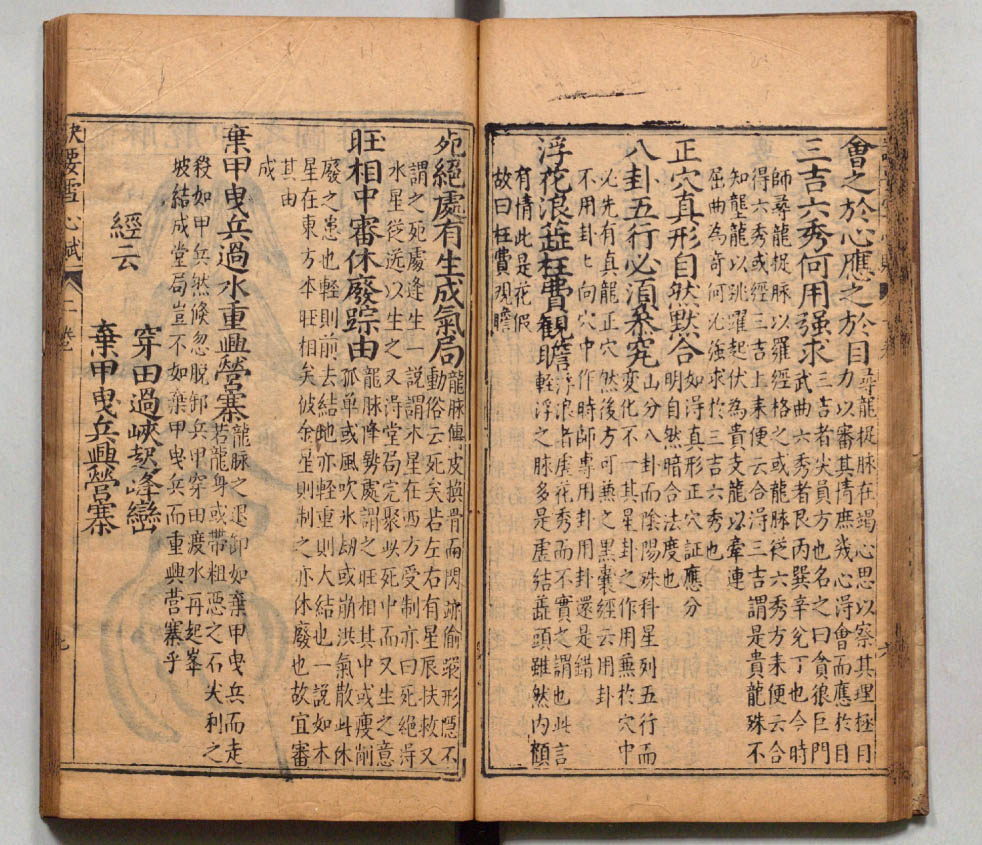 會之於心應之於目力以審其情庶幾心淂會而應於目尋龍捉脉在竭心思以察其理極目
三吉六秀何用强求武曲六秀者艮丙巽辛兊丁也今時三吉者尖員方也名之曰貪狼巨門
師尋龍捉脉以羅經格之或龍脉從六秀方来便云合
得六秀或經三吉上来便云合淂三吉謂是貴龍殊不
知壟龍以跳躍起伏為貴支龍以牽連
屈曲為奇何必强求於三吉六秀也
正穴真形自然默合明自然暗合法度也如淂真形正穴証應分
八卦五行必湏叅究變化不一其星卦之作用無於穴中山分八卦而陰陽殊科星列五行而
必先有真龍正穴然後方可無之黑囊經云用卦
不用卦卜向穴中作時師專用卦還是錯
浮花浪蕋枉費觀瞻輕浮之脉多是虛結蕋頭雖然内顧浮浪者虛花秀而不實之謂也此言
有情此是花假
故曰枉費观瞻
死絕處有生成氣局動俗云死矣若左右有星辰扶救又龍脉傳皮換骨而閃跡偷踪形隱不
謂之死處逢生一說謂木星在西方受制亦曰死絕淂
水星從遠以生之又淂堂局完聚此死中而又生之意
旺相中審休廢踪由孤單或風吹氷刼或崩洪氣散此休龍脉降勢處謂之旺相其中或瘦削
廢之患也輕則前去結地亦輕重則大結也一說如木
星在東方本旺相矣彼金星則制之亦休廢也故宜審
其由
成
棄甲曳兵過水重興營寨若龍身或帶粗惡之石尖利之龍脉之退卸如棄甲曳兵而走
殺如甲兵然倏忽脫卸兵甲穿田渡水再起峯
坡結成堂局豈不如棄甲曳兵而重興营寨乎
經云
穿田過峽起峰巒
棄甲曳兵興營寨
雪心賦
九